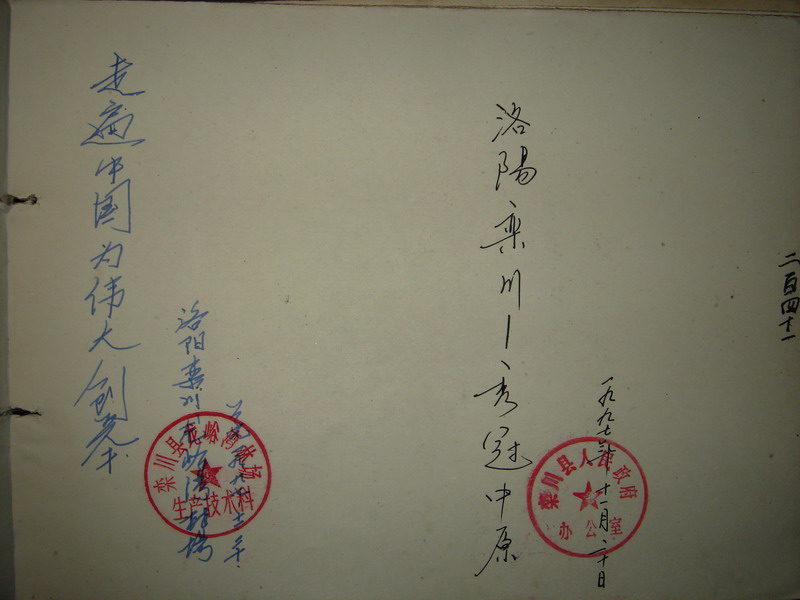 二百四十一
洛陽栾川－秀冠中原
一九九七年十一月二十日
栾川县人民政府
办公室
走遍中国为伟大创举
洛阳栾川龙峪湾林场
栾川县龙峪湾林场
生产技术科